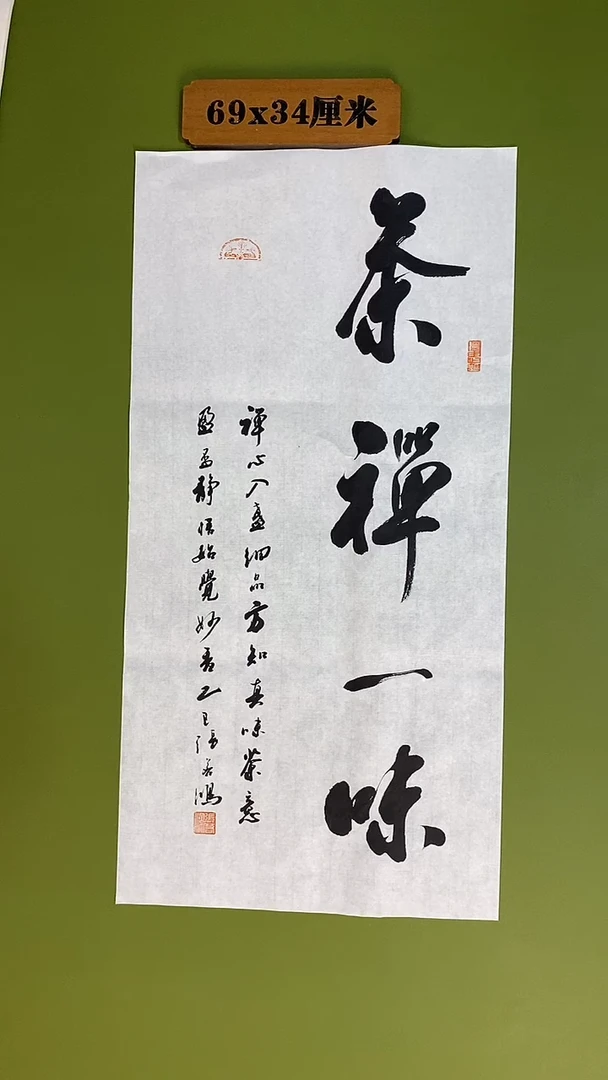 69x34厘米
茶禪一味
禪心入盏细品方知真味茶意
盈静悟始覺妙乙巳張鴻